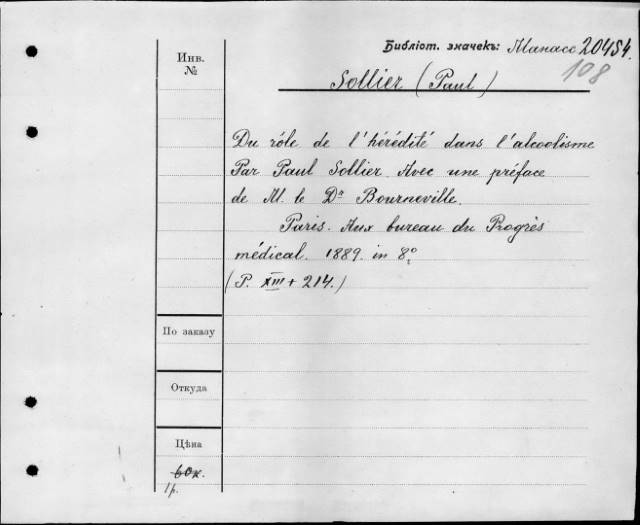 Библіот. значекъ: Манасс 20454.
108
Инв.
№
Sollier (Paul)
Du rôle de l'hérédité dans l'alcoolisme
Par Paul Sollier. Avec une préface
de M. le Dr Bourneville.
Paris. Aux bureau du Progrès
médical. 1889. in 8º
(P. XIII + 214.)
По заказу
Откуда
Цѣна
60к.
1р.